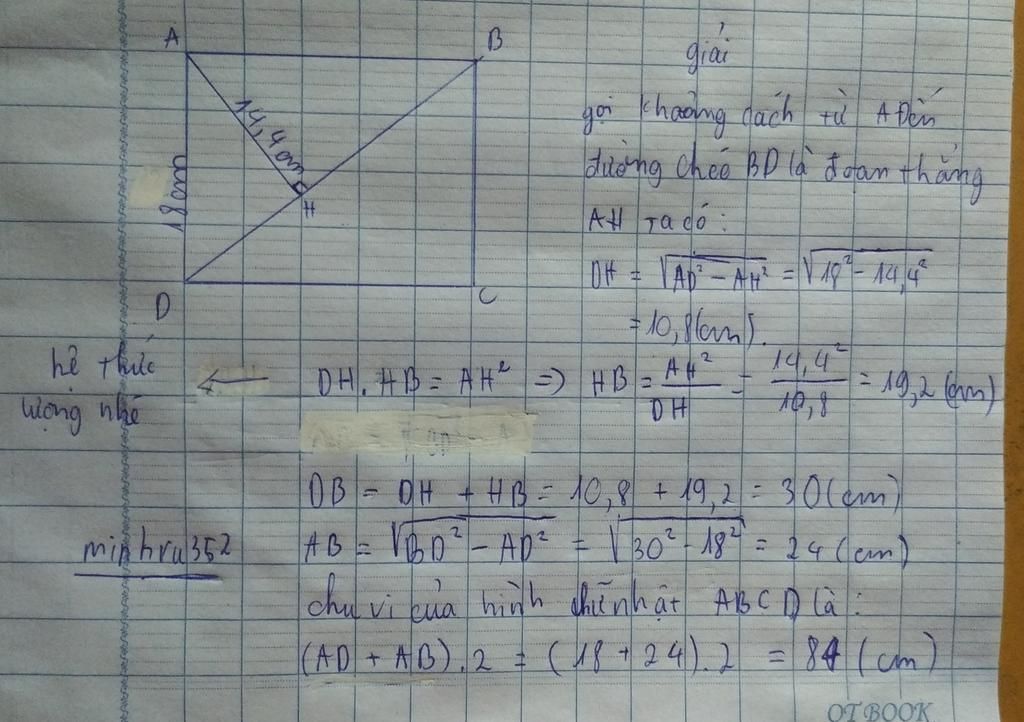 A
B
14,4cm
18cm
H
D
C
giải
gọi khoảng cách từ A đến
đường chéo BD là đoạn thẳng
AH ta có:
DH = √AD² - AH² = √18² - 14,4²
= 10,8(cm).
hệ thức
lượng nhé
← DH . HB = AH² => HB = AH²/DH = 14,4²/10,8 = 19,2 (cm)
DB = DH + HB = 10,8 + 19,2 = 30(cm)
minhru352
AB = √BD² - AD² = √30² - 18² = 24 (cm)
chu vi của hình chữ nhật ABCD là:
(AD + AB) . 2 = (18 + 24) . 2 = 84 (cm)
OTBOOK